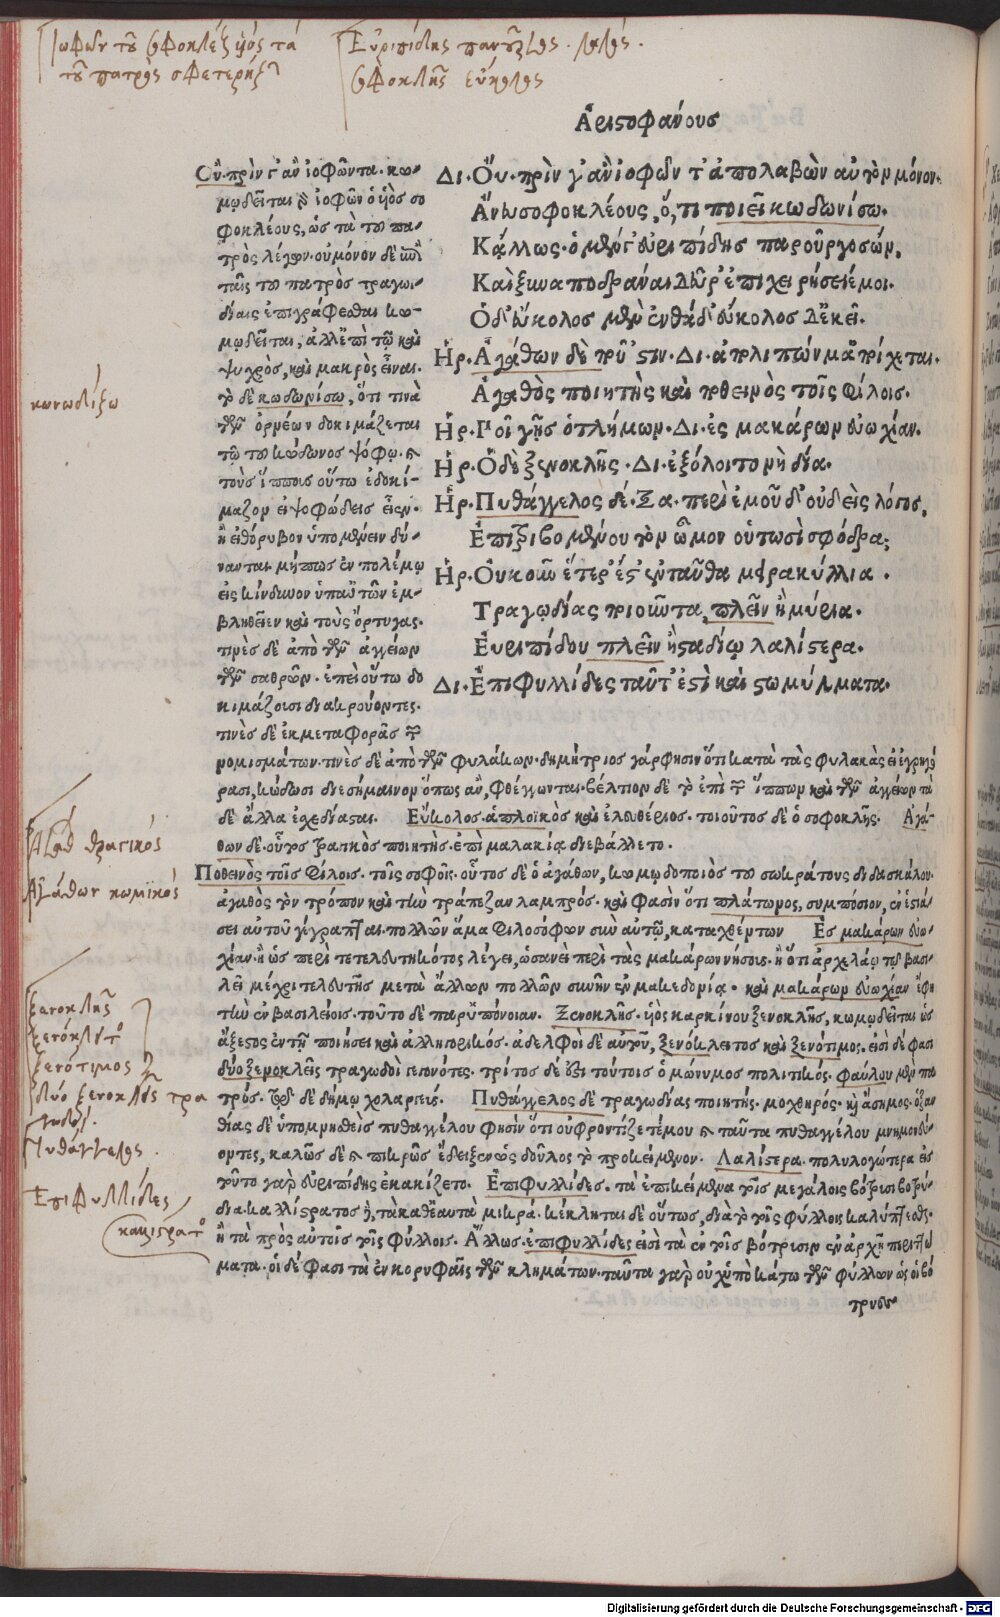 Ἰωφῶν τοῦ Σοφοκλέους υἱός τὰ
τοῦ πατρὸς σφετερίζει
Εὐριπίδης πανοῦργος.
Σοφοκλῆς εὔκολος
Ἀριστοφάνους
Δι. Οὔ. πρὶν γ' ἂν ἰοφῶντ' ἀπολαβὼν αὐτὸν μόνον.
Ἄνευ σοφοκλέους, ὅ, τι ποιεῖ κωδωνίσω.
Κἄλλως. ὁ μέν γ' εὐριπίδης πανοῦργος ὤν,
Καὶ ξυναποδρᾶναι δεῦρ' ἐπιχειρήσειέ μοι.
Ὁ δ' εὔκολος μὲν ἐνθάδ' εὔκολος δ' ἐκεῖ.
Ηρ. Ἀγάθων δὲ ποῦ 'στιν. Δι. ἀπολιπών μ' ἀποίχεται.
Ἀγαθὸς ποιητὴς καὶ ποθεινὸς τοῖς φίλοις.
Ηρ. Ποῖ γῆς ὁ τλήμων. Δι. ἐς μακάρων εὐωχίαν.
Ηρ. Ὁ δὲ ξενοκλῆς. Δι. ἐξόλοιτο νὴ δία.
Ηρ. Πυθάγγελος δέ. Ξα. περὶ ἐμοῦ δ' οὐδεὶς λόγος,
Ἐπιτριβομένου τὸν ὦμον οὑτωσὶ σφόδρα;
Ηρ. Οὐκοῦν ἕτερ' ἔστ' ἐνταῦθα μειρακύλλια.
Τραγῳδίας ποιοῦντα, πλεῖν ἢ μύρια.
Εὐριπίδου πλεῖν ἢ σταδίῳ λαλίστερα.
Δι. Ἐπιφυλλίδες ταῦτ' ἐστὶ καὶ στωμύλματα.
Οὔ. πρὶν γ' ἂν ἰοφῶντα. κω-
μῳδεῖται ὁ ἰοφῶν ὁ υἱὸς σο
φοκλέους, ὡς τὰ τοῦ πα-
τρὸς λέγων. οὐ μόνον δὲ ἐπὶ
ταῖς τοῦ πατρὸς τραγῳ-
δίαις ἐπιγράφεσθαι κω-
μῳδεῖται, ἀλλ' ἐπὶ τῷ καὶ
ψυχρὸς, καὶ μακρὸς εἶναι.
τὸ δὲ κωδωνίσω, ὅτι τινὰ
τῶν ὀρνέων δοκιμάζεται
τῷ τοῦ κώδωνος ψόφῳ. καὶ
τοὺς ἵππους οὕτω ἐδοκί-
μαζον εἰ ψοφώδεις εἶεν.
ἢ εἰ θόρυβον ὑπομένειν δύ-
νανται. μήπως ἐν πολέμῳ
εἰς κίνδυνον ὑπ' αὐτῶν ἐμ-
βληθεῖεν καὶ τοὺς ὄρτυγας.
τινὲς δὲ ἀπὸ τῶν ἀγγείων
τῶν σαθρῶν. ἐπεὶ οὕτω δο
κιμάζουσι διακρούοντες.
τινὲς δὲ ἐκ μεταφορᾶς τῶν
νομισμάτων. τινὲς δὲ ἀπὸ τῶν φυλάκων. δημήτριος γάρ φησιν ὅτι κατὰ τὰς φυλακὰς εἰ ἐγρηγό
ρασι, κώδωσι διεσήμαινον ὅπως ἂν, φθέγγωνται. βέλτιον δὲ τὸ ἐπὶ τῶν ἵππων καὶ τῶν ἀγγείων τὰ
δὲ ἄλλα ἐσχεδίασται. Εὔκολος. ἁπλοϊκὸς καὶ ἐλευθέριος. τοιοῦτος δὲ ὁ σοφοκλῆς. Ἀγά-
θων δὲ. οὗτος τραγικὸς ποιητὴς. ἐπὶ μαλακίᾳ διεβάλλετο.
Ποθεινὸς τοῖς φίλοις. τοῖς σοφοῖς. οὗτος δὲ ὁ ἀγάθων, κωμῳδοποιὸς τοῦ σωκράτους διδασκάλου.
ἀγαθὸς τὸν τρόπον καὶ τὴν τράπεζαν λαμπρός. καὶ φασὶν ὅτι πλάτωνος, συμπόσιον, ἐν ἑστιά-
σει αὐτοῦ γέγραπται. πολλῶν ἅμα φιλοσόφων σὺν αὐτῷ, καταχθέντων Ἐς μακάρων εὐω-
χίαν. ἢ ὡς περὶ τετελευτηκότος λέγει, ὡσανεὶ περὶ τὰς μακάρων νήσους. ἢ ὅτι ἀρχελάῳ τῷ βασι-
λεῖ μέχρι τελευτῆς μετὰ ἄλλων πολλῶν συνῆν ἐν μακεδονίᾳ. καὶ μακάρων εὐωχίαν ἔφη
τὴν ἐν βασιλείοις. τοῦτο δὲ παρ' ὑπόνοιαν. Ξενοκλῆς. υἱὸς καρκίνου ξενοκλῆς, κωμῳδεῖται ὡς
ἄξεστος ἐν τῇ ποιήσει καὶ ἀλληγορικός. ἀδελφοὶ δὲ αὐτοῦ, ξενόκλειτος καὶ ξενότιμος. εἰσὶ δέ φασι
δύο ξενοκλεῖς τραγῳδοὶ γεγονότες. τρίτος δὲ ἐπὶ τούτοις ὁμώνυμος πολιτικός. φαύλου μὲν πα
τρός. ἐν δὲ δήμῳ χολαργεύς. Πυθάγγελος δὲ τραγῳδίας ποιητής. μοχθηρός. ἢ ἄσημος. ὁ ξαν
θίας δὲ ὑπομνησθεὶς πυθαγγέλου φησὶν ὅτι οὐ φροντίζετέ μου καὶ ταῦτα πυθαγγέλου μνημονεύ-
οντες, καλῶς δὲ καὶ πικρῶς ἔδειξεν ὡς δοῦλος τὸ προκείμενον. Λαλίστερα. πολυλογώτερα εἰς
τοῦτο γὰρ εὐριπίδης ἐκακίζετο. Ἐπιφυλλίδες. τὰ ἐπικείμενα τοῖς μεγάλοις βότρυσι βοτρύ-
δια. καλλίστρατος δὲ, τὰ καθ' ἑαυτὰ μικρά. κέκληται δὲ οὕτως, διὰ τὸ τοῖς φύλλοις καλύπτεσθαι.
ἢ τὰ πρὸς αὐτοῖς τοῖς φύλλοις. Ἄλλως. ἐπιφυλλίδες εἰσὶ τὰ ἐν τοῖς βότρυσιν ἐν ἀρχῇ περιττώ
ματα. οἱ δέ φασι τὰ ἐν κορυφαῖς τῶν κλημάτων. ταῦτα γὰρ οὐχ ὑποκάτω τῶν φύλλων ὡς οἱ βό
τρυες
κωνωδίξω
Ἀγάθων τραγικός
Ἀγάθων κωμικός
ξενοκλῆς
ξενόκλειτος
ξενότιμος
δύο ξενοκλεῖς τρα
γῳδοί.
Πυθάγγελος.
Ἐπιφυλλίδες
καλλίστρατος
Digitalisierung gefördert durch die Deutsche Forschungsgemeinschaft - DFG